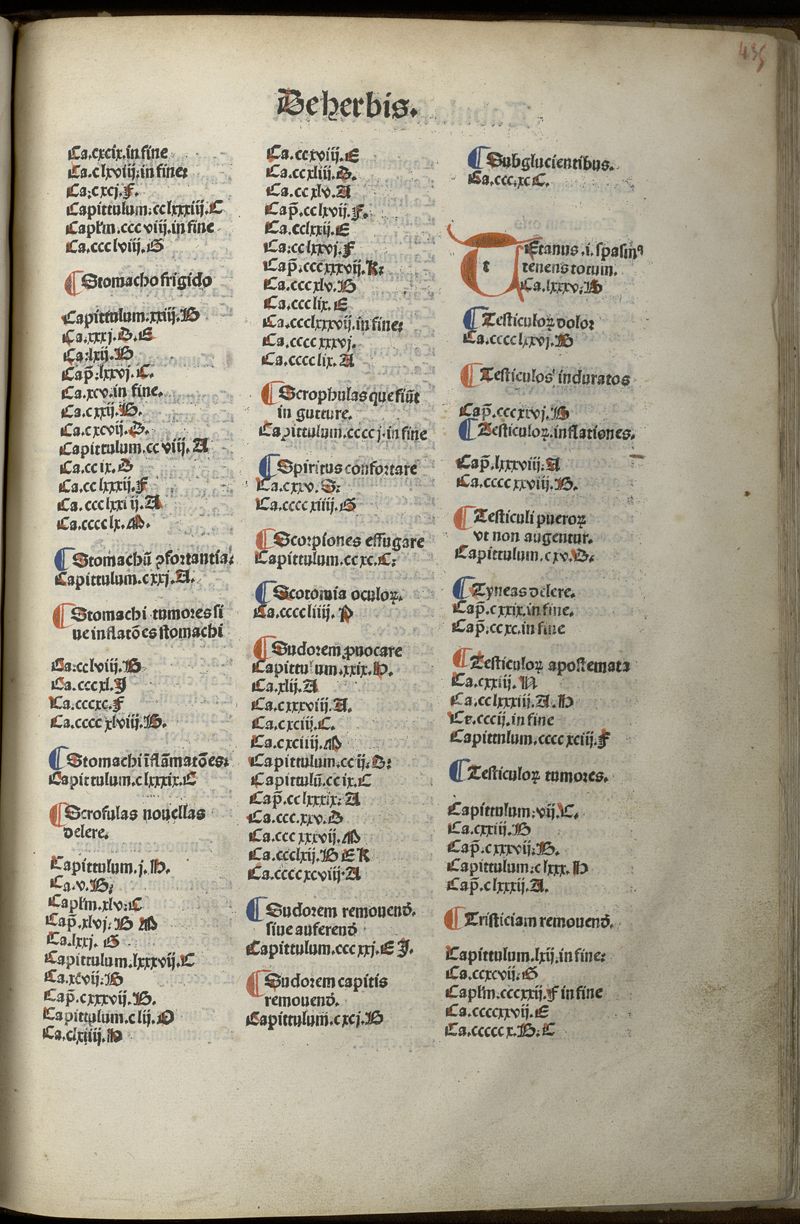 435
De herbis.
Ca.cxcix.in fine
Ca.clxviij.in fine:
Ca:cxcj.F.
Capittulum.cclxxxiij.C
Capłm.cccviij.in fine
Ca.ccclviij.G
Stomacho frigido
Capittulum.xxiij.B
Ca.xxxj.D.E
Ca:lxij.B
Cap̄.lxxvj.C.
Ca.xcv.in fine.
Ca.cxxij.B.
Ca.cxcvij.D.
Capittulum.ccviij.A
Ca.ccix.D
Ca.cclxxxij.F
Ca.ccclxxiij.A
Ca.cccclx.M.
Stomachū ꝯfortantia:
Capittulum.cxxj.A.
Stomachi tumores si
ue inflatōes stomachi
Ca:cclviij.B
Ca.cccxl.J
Ca.cccxc.F
Ca.ccccxlviij.B.
Stomachi īflāmatōes:
Capittulum.clxxxix.E
Scrofulas nouellas
delere.
Capittulum.j.H.
Ca.v.B:
Capłm.xlv:C
Cap̄.xlvj:B M
Ca.lxxj.G
Capittulum.lxxxvij.C
Ca.xcvij:B
Cap̄.cxxxvij.B.
Capittulum.clij.O
Ca.clxiiij.H
Ca.ccxviij.E
Ca.ccxliij.D.
Ca.ccxlv.A
Cap̄.cclxvij.F.
Ca.cclxxij.E
Ca:cclxxvj.F
Cap̄.cccxxxvij.K:
Ca.cccxlv.B
Ca.ccclix.E
Ca.ccclxxxvij.in fine:
Ca.ccccxxxvj.
Ca.cccclix.A
Scrophulas que fiūt
in gutture.
Capittulum.ccccj.in fine
Spiritus confortare
Ca.cxxv.S:
Ca.ccccxiiij.G
Scorpiones effugare
Capittulum.ccxc.C:
Scotomia oculoꝝ.
Ca.ccccliiij.P
Sudorem ꝓuocare
Capittulum.xxix.H.
Ca.xlij.A
Ca.cxxxviij.A.
Ca.cxciij.C.
Ca.cxciiij.M
Capittulum.ccij.D:
Capitulū.ccix.C
Cap̄.cclxxxix:A
Ca.ccc.xxv.D
Ca.cccxxxvij.M
Ca.ccclxij.B E K
Ca.ccccxcviij.A
Sudorem remouend̄.
siue auferend̄
Capittulum.cccxxj.E J.
Sudorem capitis
remouend̄.
Capittulum.cxcj.B
Subglucientibus.
Ca.ccc.xc C.
TEtanus .i. spasmꝰ
tenens totum.
Ca.lxxxv.B
Testiculoꝝ dolor
Ca.cccclxxvj.B
Testiculos induratos
Cap̄.cccxcvj.B
Testiculoꝝ.inflationes.
Cap̄.lxxxviij:A
Ca.ccccxxviij.B.
Testiculi pueroꝝ
vt non augentur.
Capittulum.cxv.B.
Tyneas delere.
Cap̄.cxxix.in fine.
Cap̄.ccxc.in fine
Testiculoꝝ apostemata
Ca.cxxiij.N
Ca.cclxxxiij.A.H
Ca.cccij.in fine
Capittulum.ccccxciij.F
Testiculoꝝ tumores.
Capittulum.vij.C.
Ca.cxxiij.B
Cap̄.cxxxvij:B.
Capittulum:clxxx.H
Cap̄.clxxxij.A.
Tristiciam remouend̄.
Capittulum.lxij.in fine:
Ca.ccxcvij:G
Capłm.cccxxij.F in fine
Ca.ccccxxvij.E
Ca.cccccx.B:C